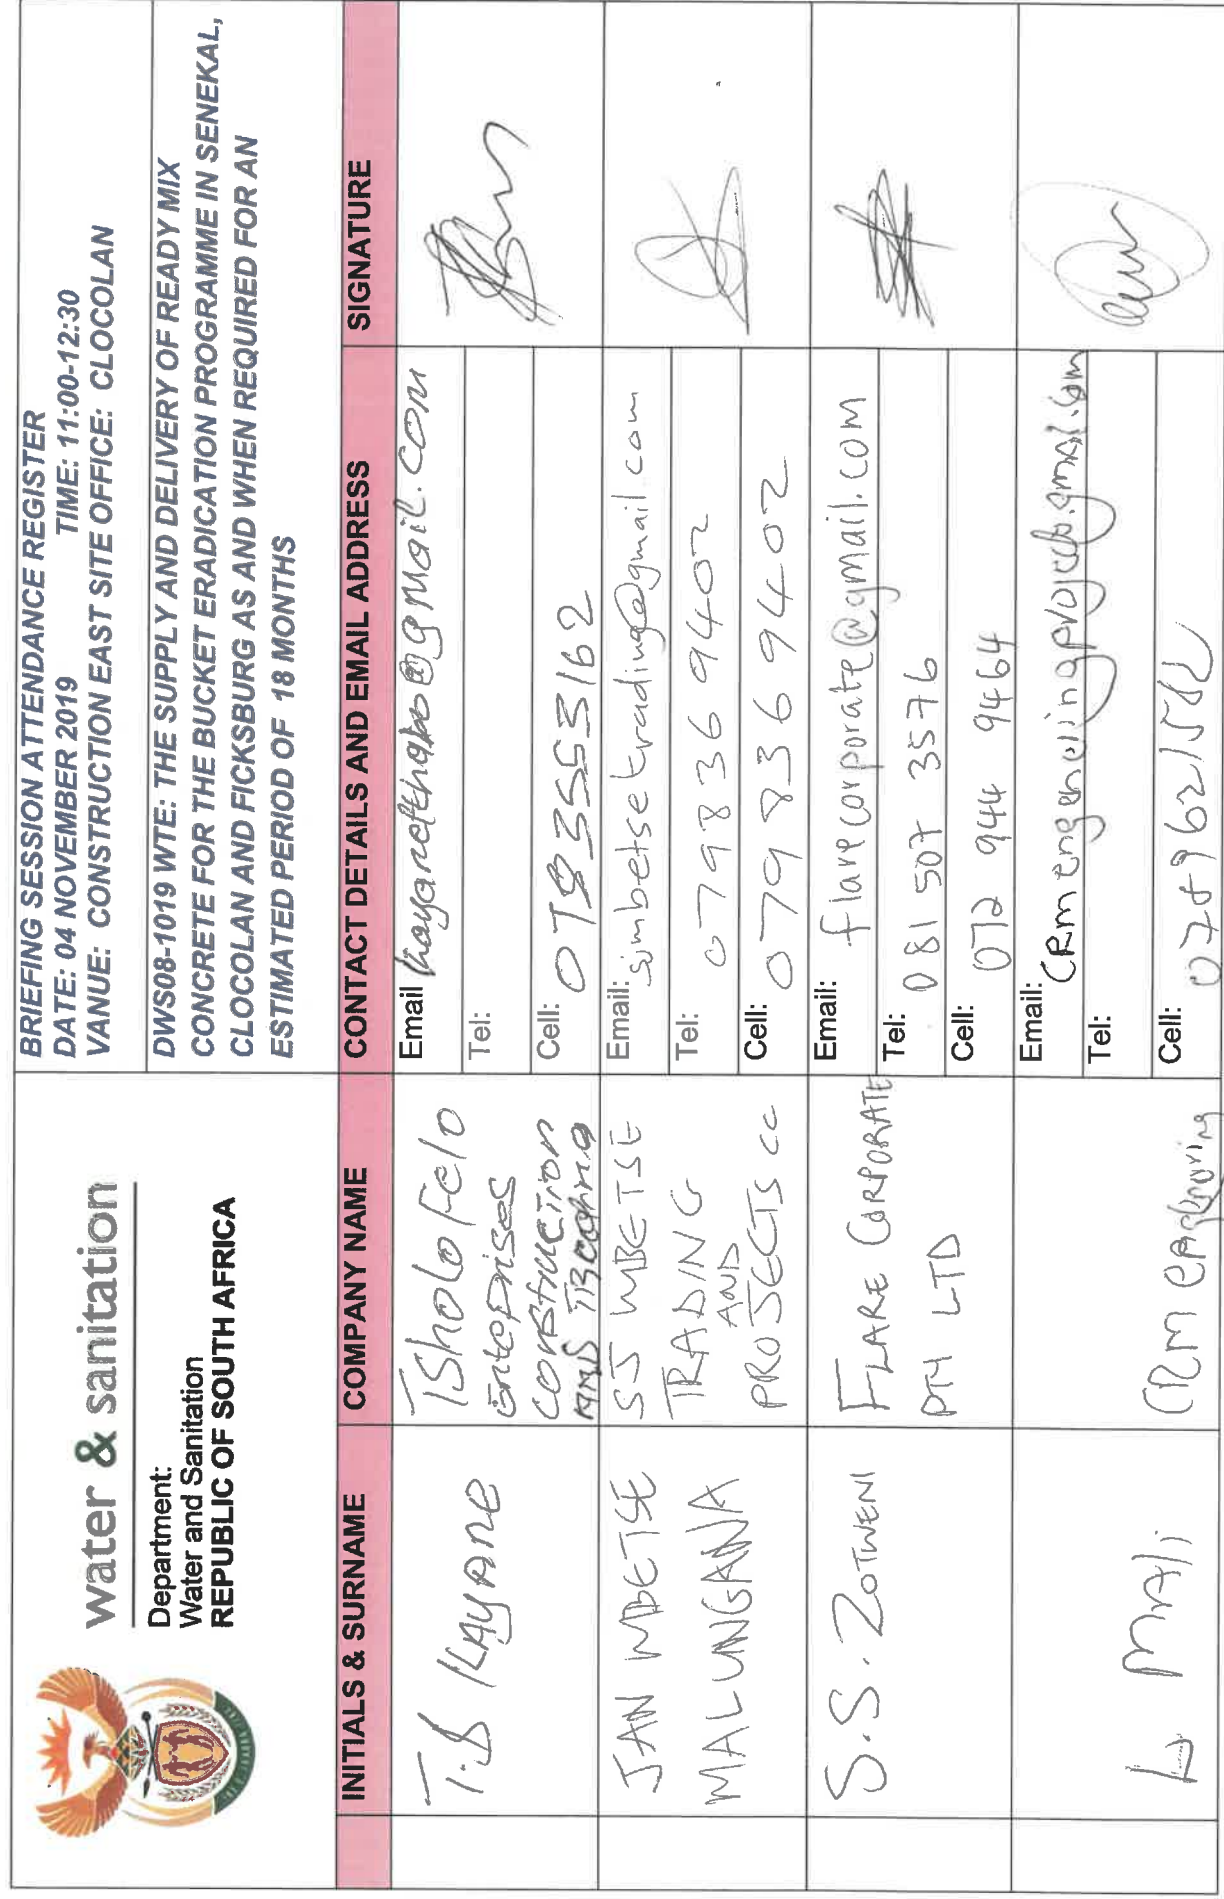 water & sanitation
Department:
Water and Sanitation
REPUBLIC OF SOUTH AFRICA
BRIEFING SESSION ATTENDANCE REGISTER
DATE: 04 NOVEMBER 2019 TIME: 11:00-12:30
VANUE: CONSTRUCTION EAST SITE OFFICE: CLOCOLAN
DWS08-1019 WTE: THE SUPPLY AND DELIVERY OF READY MIX
CONCRETE FOR THE BUCKET ERADICATION PROGRAMME IN SENEKAL,
CLOCOLAN AND FICKSBURG AS AND WHEN REQUIRED FOR AN
ESTIMATED PERIOD OF 18 MONTHS
INITIALS & SURNAME COMPANY NAME CONTACT DETAILS AND EMAIL ADDRESS SIGNATURE
T.S KAYANE
TSholoFelo
enteprises
construction
AND
Email kayanetthabo@gmail.com
Tel:
Cell: 0783553162
JAN MBETSE
MALUNGANA
SJ MBETSE
TRADING
AND
PROJECTS cc
Email: sjmbetsetrading@gmail.com
Tel: 0798369402
Cell: 0798369402
S.S. ZOTWENI
FLARE CORPORATE
PTY LTD
Email: flarecorporate@gmail.com
Tel: 081 507 3576
Cell: 072 944 9464
L MALI
CRM
Email:
Tel:
Cell: